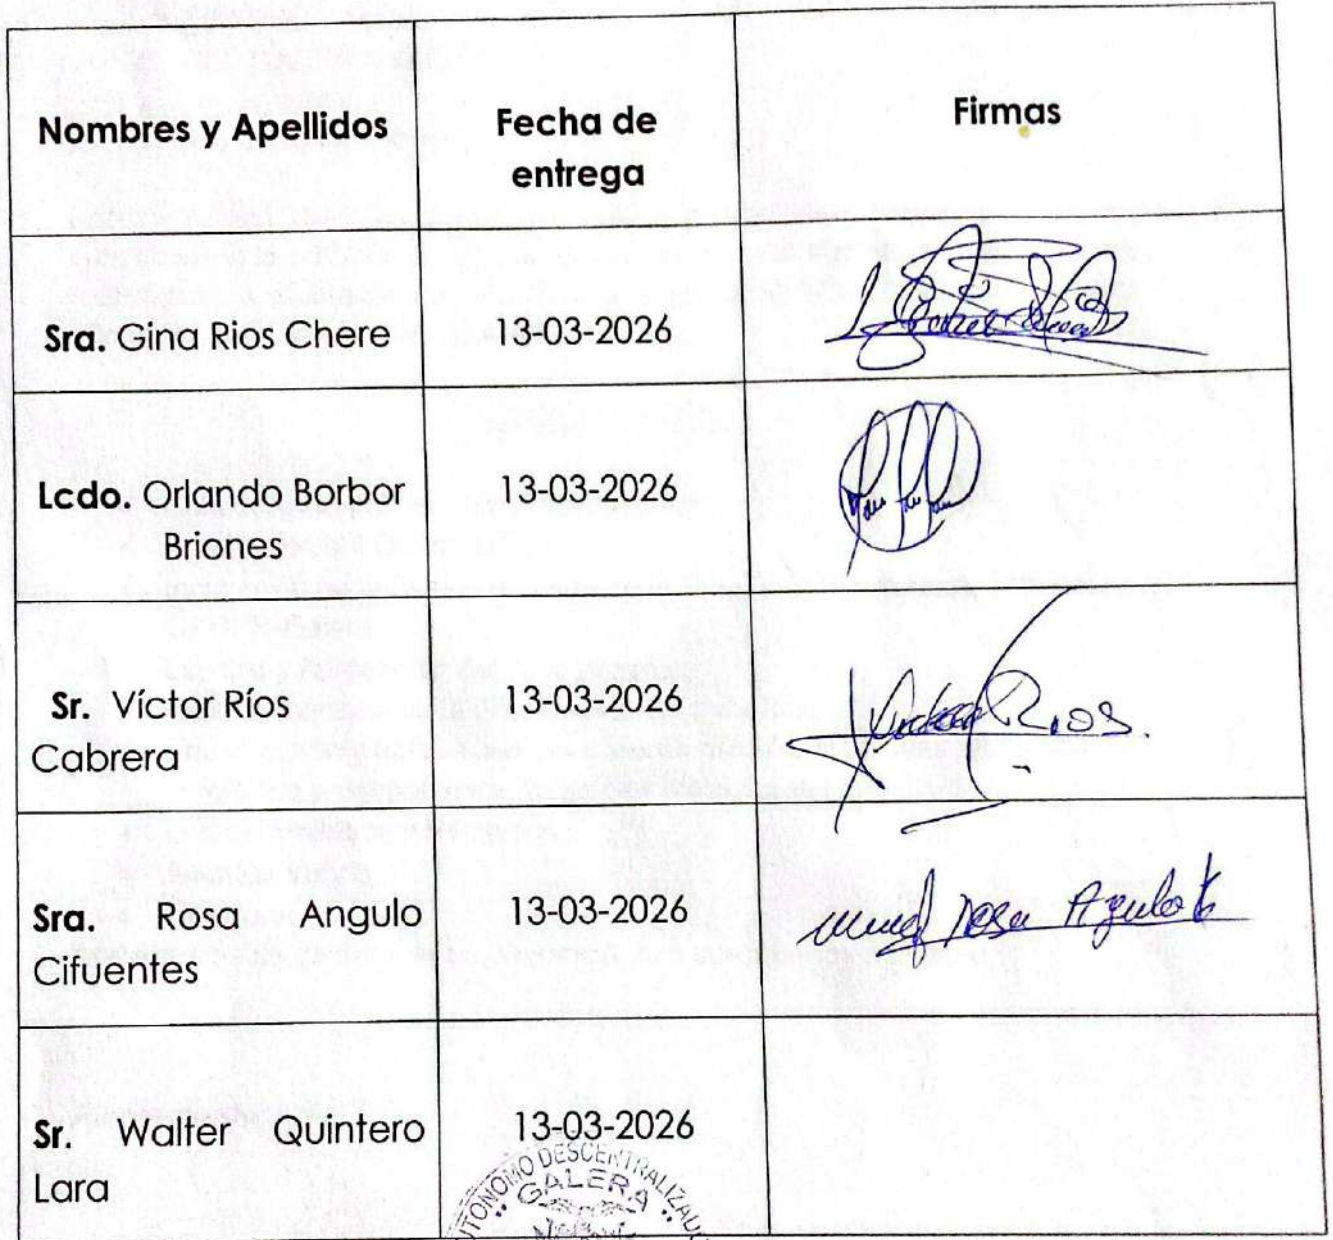 Nombres y Apellidos
Fecha de
entrega
Firmas
Sra. Gina Rios Chere
13-03-2026
Lcdo. Orlando Borbor
Briones
13-03-2026
Sr. Víctor Ríos
Cabrera
13-03-2026
Rios.
Sra. Rosa Angulo
Cifuentes
13-03-2026
Rosa Angulo
Sr. Walter Quintero
Lara
13-03-2026
DESCENTRALIZADO
GALERA